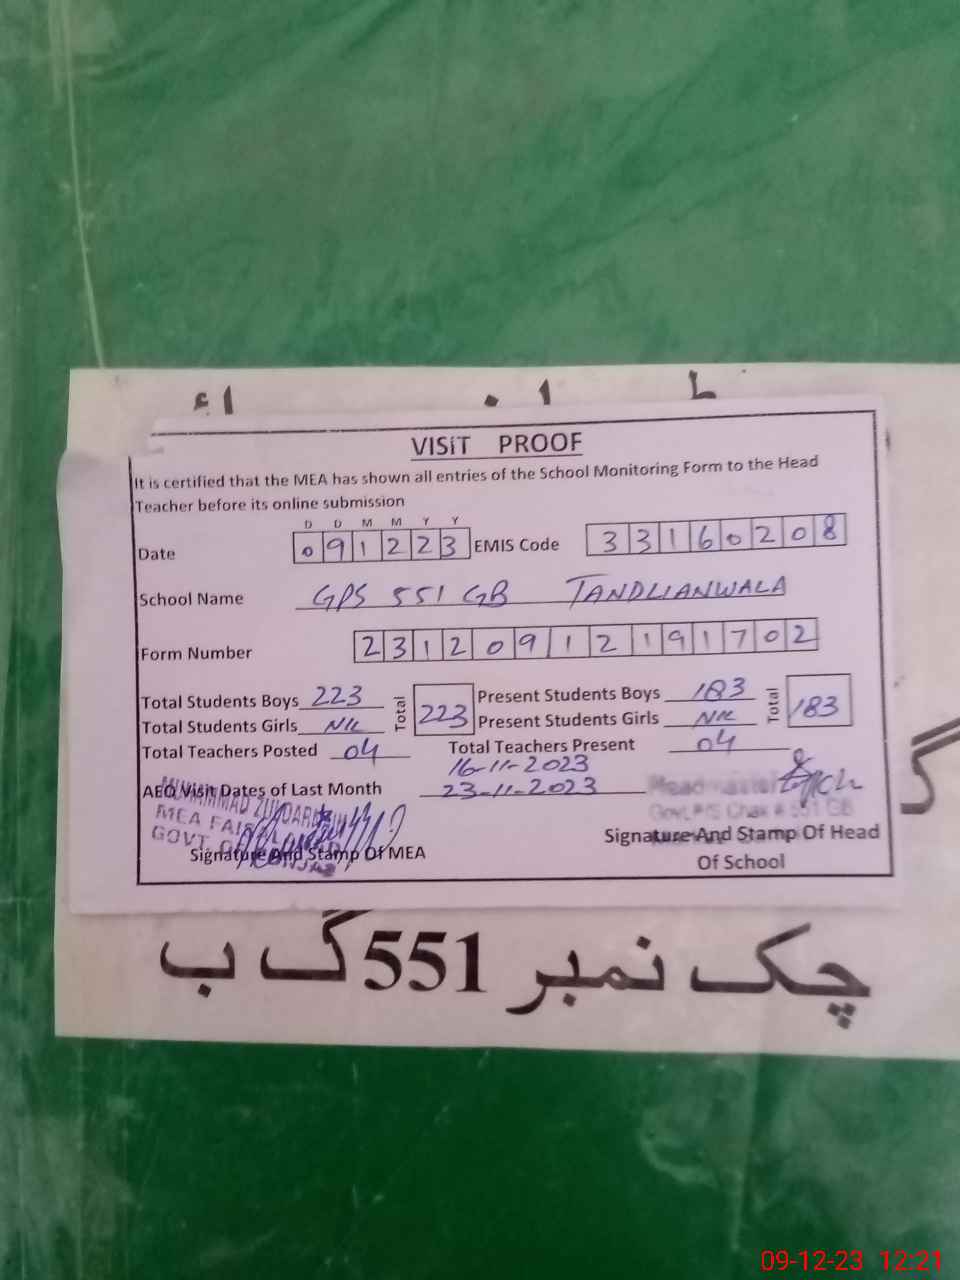 VISIT PROOF
It is certified that the MEA has shown all entries of the School Monitoring Form to the Head
Teacher before its online submission
D D M M Y Y
Date 0 9 1 2 2 3 EMIS Code 3 3 1 6 0 2 0 8
School Name GPS 551 GB TANDLIANWALA
Form Number 2 3 1 2 0 9 1 2 1 9 1 7 0 2
Total Students Boys 223 Total 223 Present Students Boys 183 Total 183
Total Students Girls NIL Present Students Girls NIL
Total Teachers Posted 04 Total Teachers Present 04
16-11-2023
AEO Visit Dates of Last Month 23-11-2023
MUHAMMAD
MEA
GOVT. OF
Headmaster
Govt. P/S Chak # 551 GB
Signature And Stamp Of MEA
Signature And Stamp Of Head
Of School
چک نمبر 551 گ ب
09-12-23 12:21